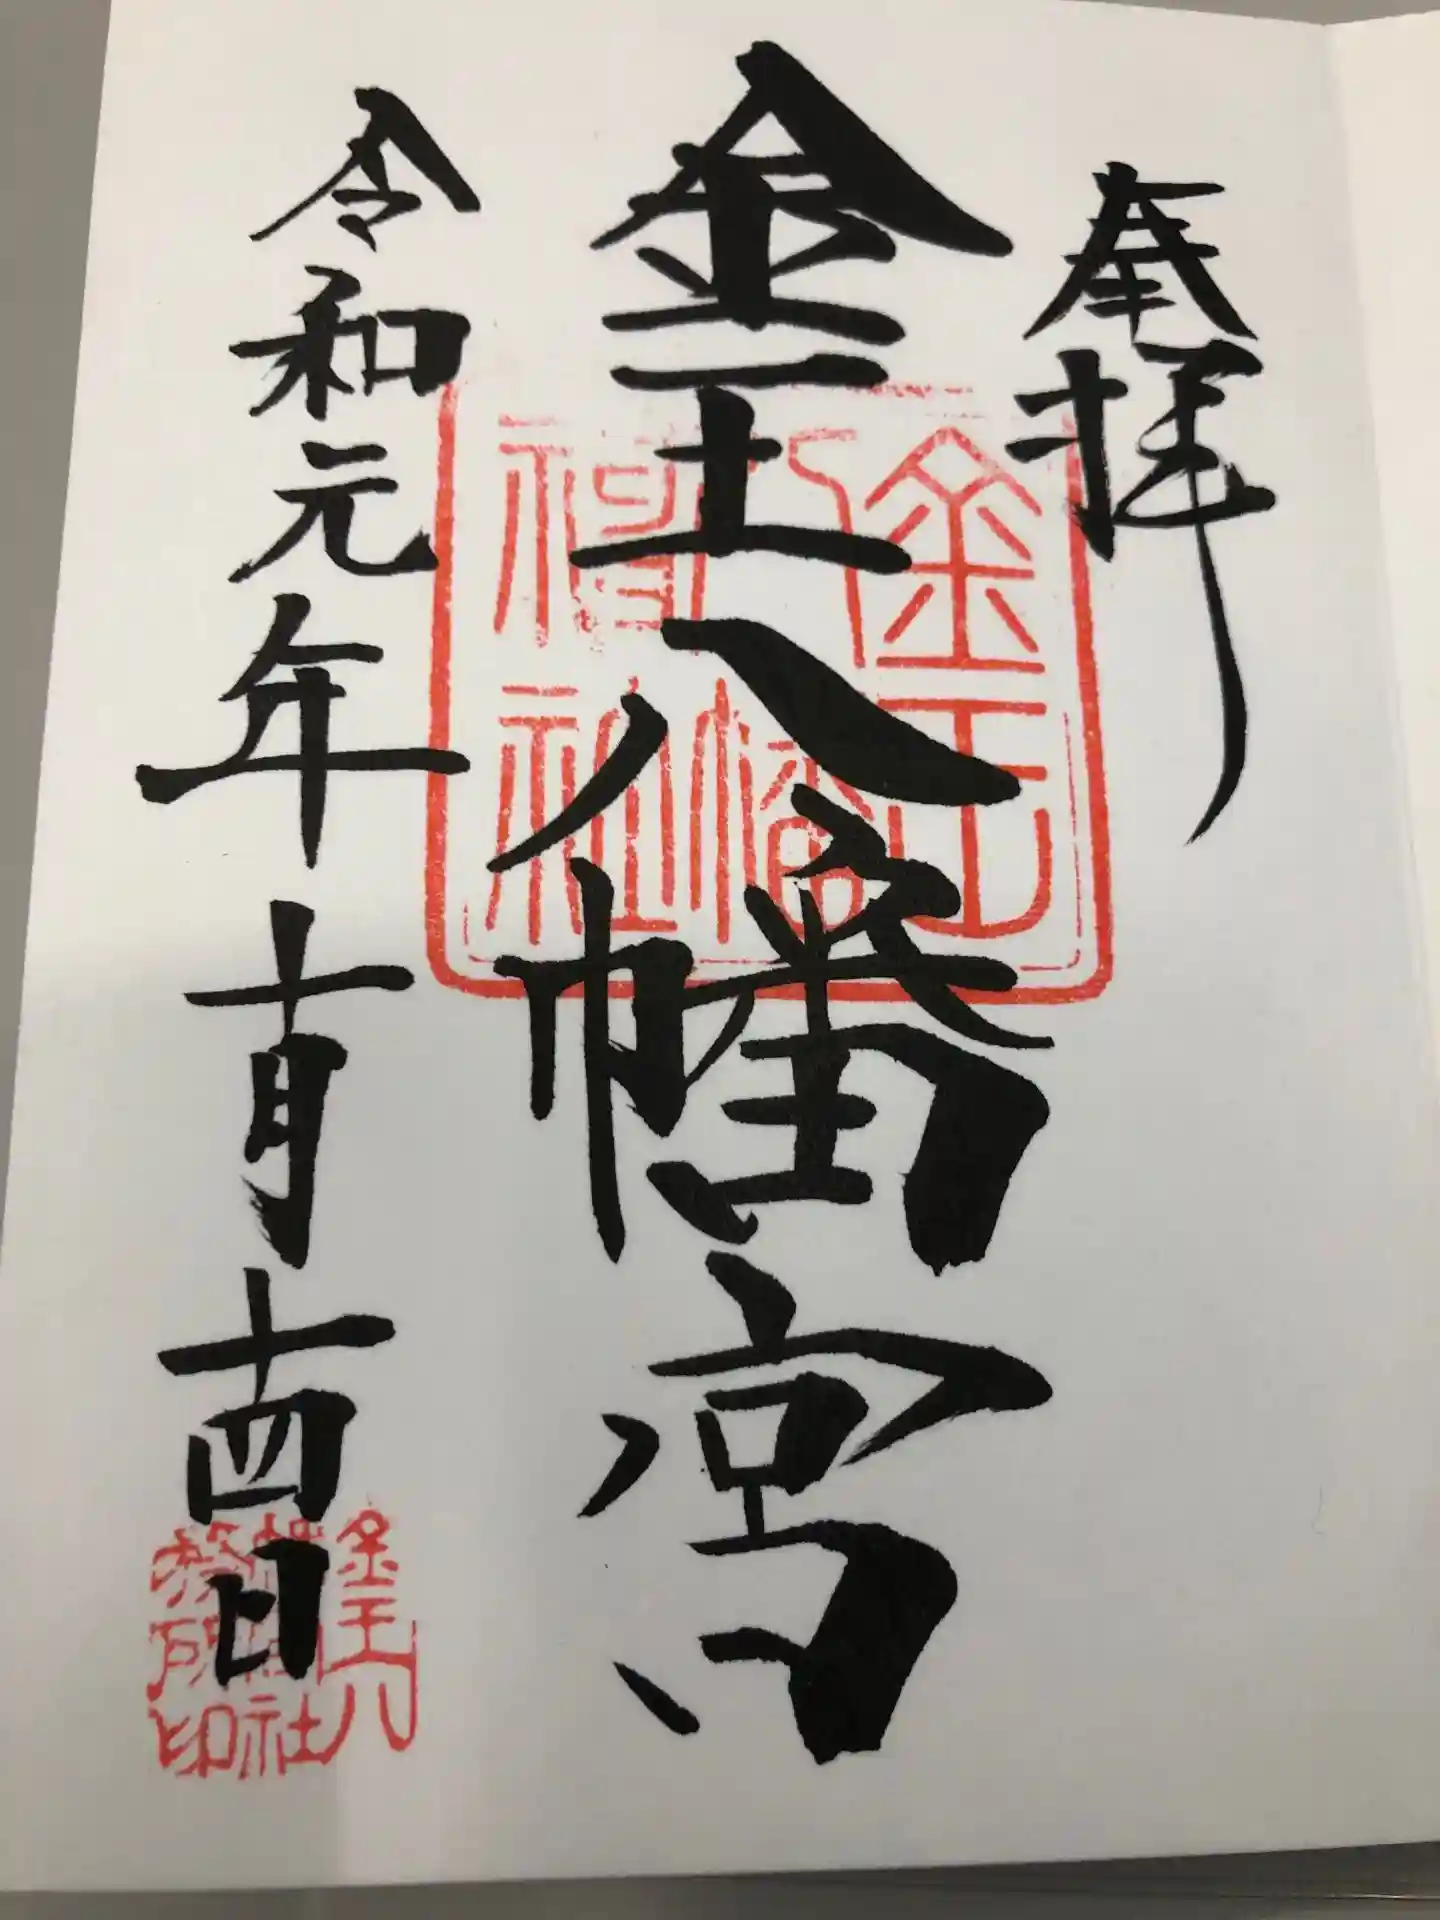 奉拝
金王八幡宮
令和元年十月十四日
金王八幡神社
金王八幡神社務所印